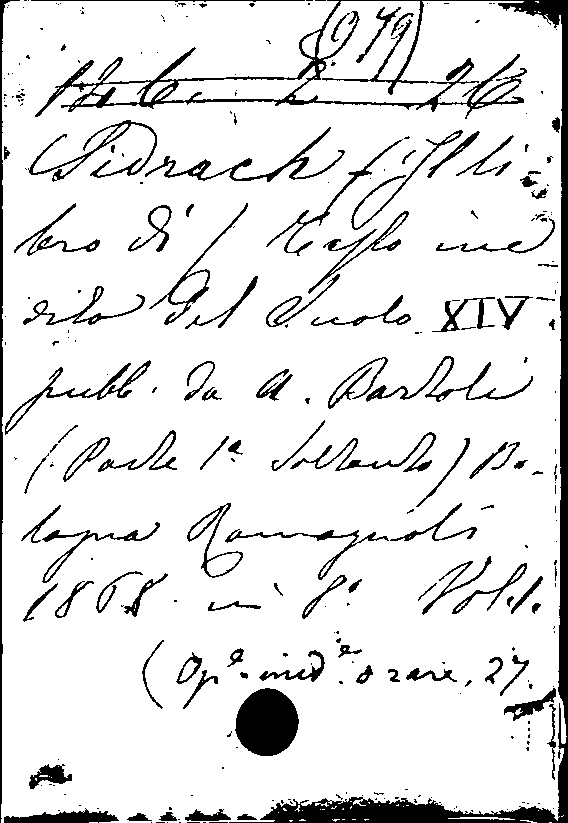 (979)
Sidrach (Il li-
bro di) Testo ine
dito del Secolo XIV.
pubb. da A. Bartoli
(Parte 1ª soltanto) Bo-
logna Romagnoli
1868 in 8º Vol. 1.
(Opᵉ. inedᵉ. o rare, 27.